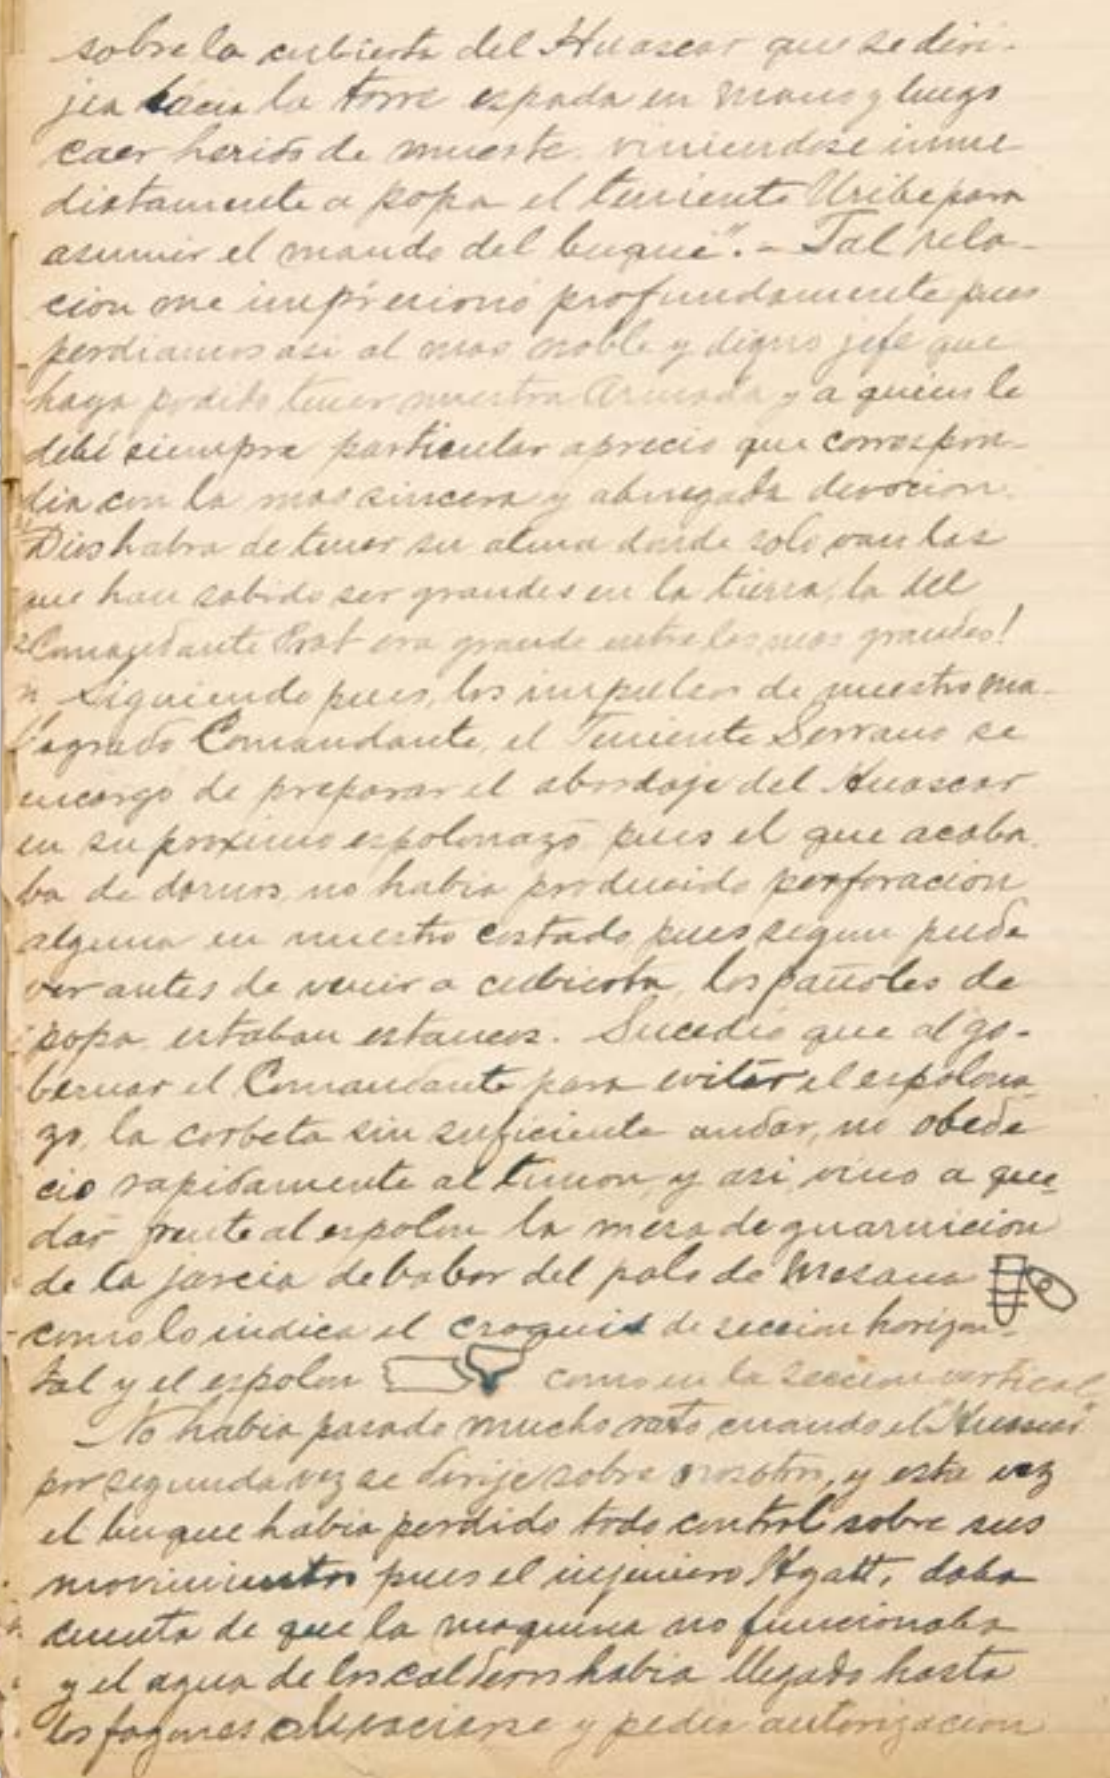 sobre la cubierta del Huascar que se diri-
jia hacia la torre espada en mano y luego
caer herido de muerte. viniendose inme
diatamente a popa el teniente Uribe para
asumir el mando del buque". - Tal rela-
cion me impresionó profundamente pues
perdiamos asi al mas noble y digno jefe que
haya podido tener nuestra Armada y a quien le
debi siempre particular aprecio que correspon-
dia con la mas sincera y abnegada devocion.
Dios habra de tener su alma donde solo van las
que han sabido ser grandes en la tierra, la del
Comandante Prat era grande entre las mas grandes!
Siguiendo pues, los impulsos de nuestro ma-
logrado Comandante, el Teniente Serrano se
encargo de preparar el abordaje del Huascar
en su proximo espolonazo pues el que acaba
ba de darnos, no habia producido perforacion
alguna en nuestro costado pues segun pude
ver antes de venir a cubierta, los pañoles de
popa estaban estancos. Sucedió que al go-
bernar el Comandante para evitar el espolona
zo, la corbeta sin suficiente andar, no obede
cio rapidamente al timon, y asi vino a que-
dar frente al espolon la mesa de guarnicion
de la jarcia de babor del palo de Mesana
como lo indica el croquis de seccion horizon-
tal y el espolon como en la seccion vertical.
No habia pasado mucho rato cuando el "Huascar"
por segunda vez se dirije sobre nosotros, y esta vez
el buque habia perdido todo control sobre sus
movimientos pues el injeniero Hyatt, daba
cuenta de que la maquina no funcionaba
y el agua de los calderos habia llegado hasta
los fogones al vaciarse y pedia autorizacion